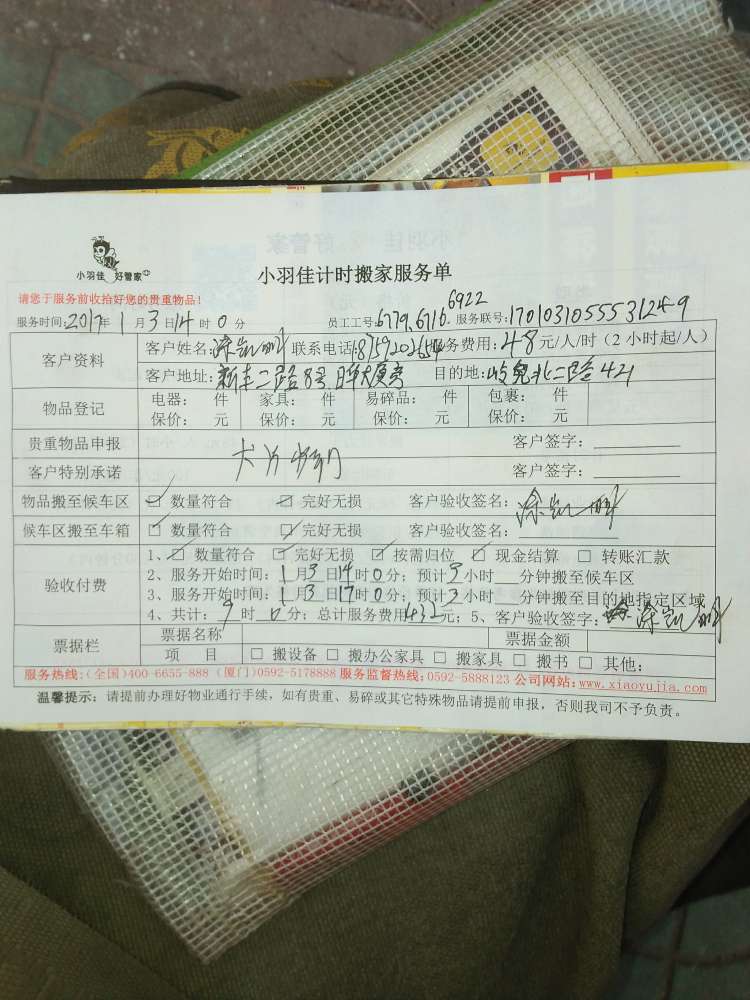 小羽佳 好管家
小羽佳计时搬家服务单
请您于服务前收拾好您的贵重物品!
6922
服务时间:2017年1月3日14时0分 员工工号:6779.6716. 服务联号:1701031055531249
客户资料
客户姓名:涂凯明 联系电话:18759202654 服务费用:48元/人/时(2小时起/人)
客户地址: 新丰二路8号日华大厦旁 目的地:岐儿北二路421
物品登记
电器: 件 家具: 件 易碎品: 件 包裹: 件
保价: 元 保价: 元 保价: 元 保价: 元
贵重物品申报 客户签字:
客户特别承诺 客户签字:
物品搬至候车区 ☑ 数量符合 ☑ 完好无损 客户验收签名: 涂凯明
候车区搬至车箱 ☑ 数量符合 ☑ 完好无损 客户验收签名:
验收付费
1、☑ 数量符合 ☑ 完好无损 ☑ 按需归位 ☑ 现金结算 □ 转账汇款
2、服务开始时间:1月3日14时0分;预计3小时 分钟搬至候车区
3、服务开始时间:1月3日17时0分;预计 小时 分钟搬至目的地指定区域
4、共计:9时0分;总计服务费用432元;5、客户验收签字: 涂凯明
票据栏
票据名称 票据金额
项 目 □ 搬设备 □ 搬办公家具 □ 搬家具 □ 搬书 □ 其他:
服务热线:(全国)400-6655-888 (厦门)0592-5178888 服务监督热线:0592-5888123 公司网站:www.xiaoyujia.com
温馨提示:请提前办理好物业通行手续,如有贵重、易碎或其它特殊物品请提前申报,否则我司不予负责。